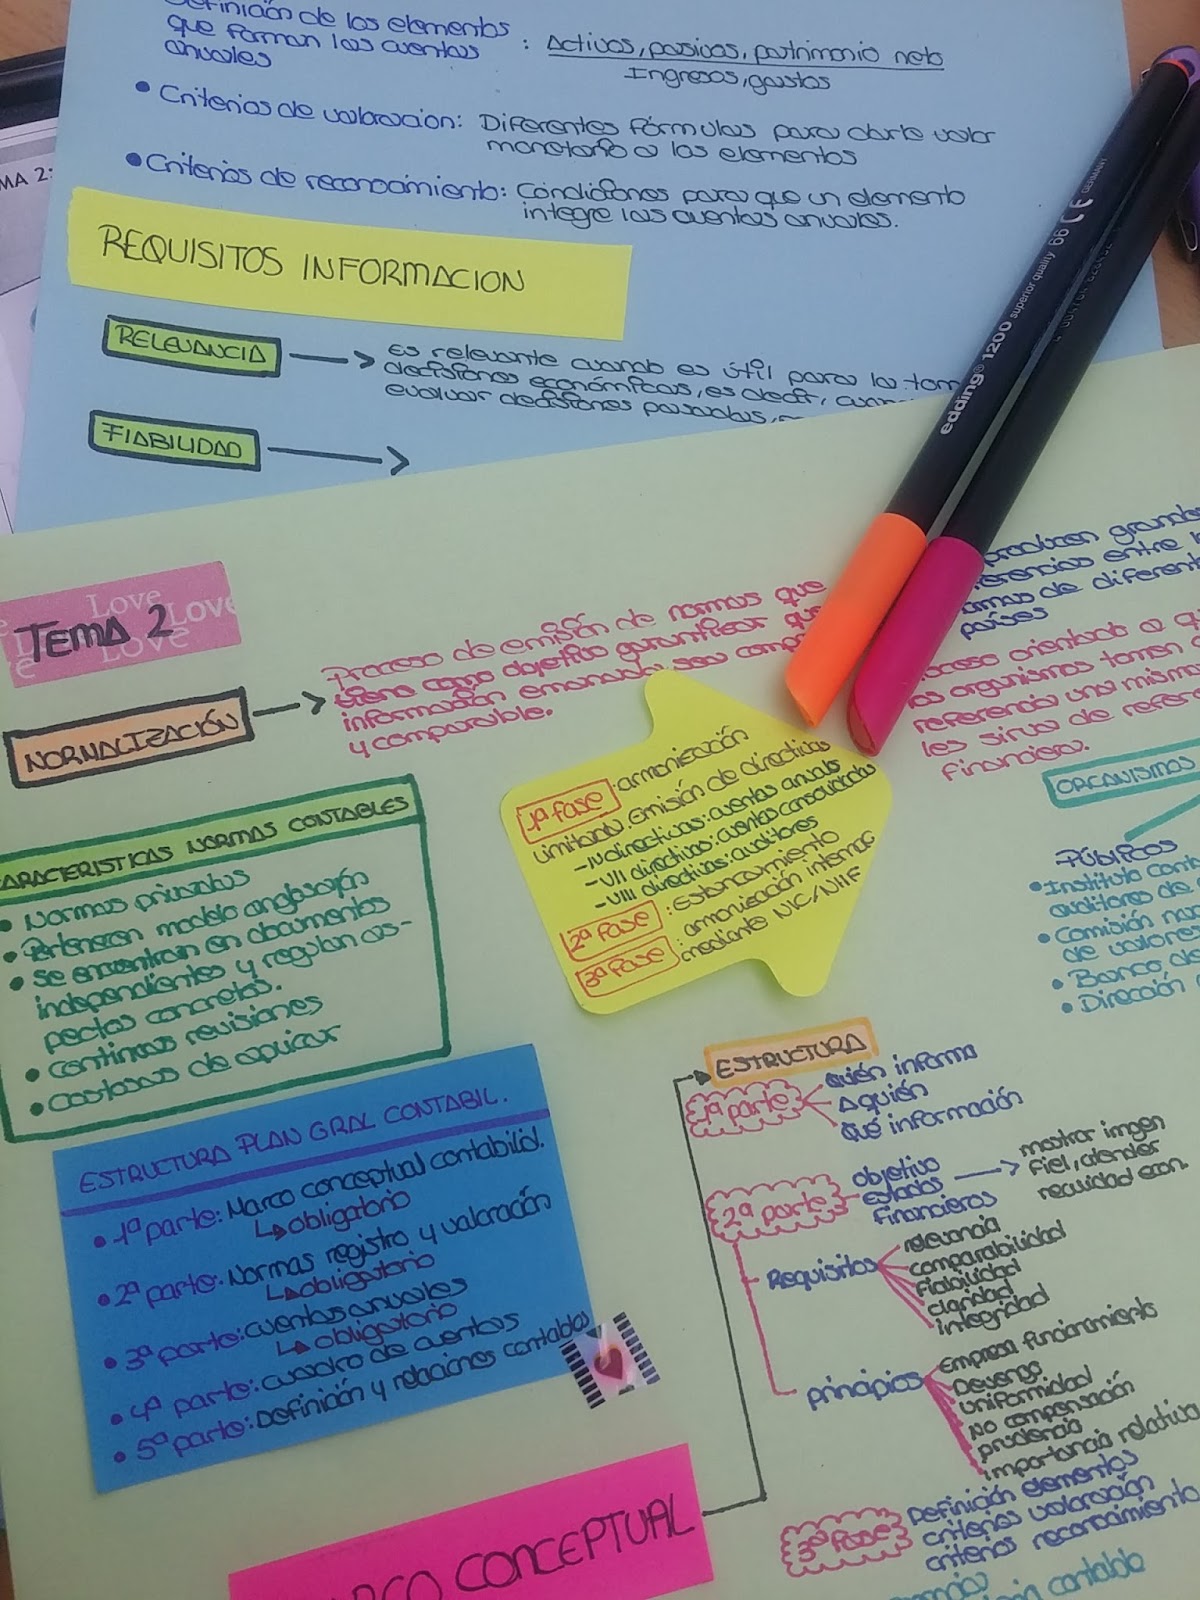 Definición de los elementos
que forman las cuentas
anuales
: Activos, pasivos, patrimonio neto
Ingresos, gastos
• Criterios de valoracion: Diferentes fórmulas para darle valor
monetario a los elementos
• Criterios de reconocimiento: Condiciones para que un elemento
integre las cuentas anuales.
MA 2:
REQUISITOS INFORMACION
RELEVANCIA
Es relevante cuando es útil para la tom
decisiones económicas, es decir,
evaluar decisiones pasadas,
FIABILIDAD
edding® 1200 superior quality 66 CE GERMANY
Love
Love
TEMA 2
NORMALIZACIÓN
Proceso de emisión de normas que
tiene como objetivo garantizar que
información emanada sea comp
y comparable.
producen grand
ferencias entre
ormas de diferent
países
oceso orientado a q
los organismos tomen
referencia una misma
les sirva de refer
financiera.
CARACTERISTICAS NORMAS CONTABLES
• Normas privadas
• Pertenecen modelo anglosajón
• Se encuentran en documentos
independientes y regulan as-
pectos concretos.
• Continuas revisiones
• Costosas de aplicar
1ª fase: armonización
limitada. Emisión de directivas
- IV directivas: cuentas anuals
- VII directiva: cuentas consolidadas
- VIII directivas: auditores
2ª fase: Estancamiento
3ª fase: armonización internac
mediante NIC/NIIF
ORGANISMOS
-Públicos
• Instituto cont
auditores de
• Comisión na
de valores
• Banco de
• Dirección
ESTRUCTURA PLAN GRAL CONTABIL.
• 1ª parte: Marco conceptual contabilid.
↳ obligatorio
• 2ª parte: Normas registro y valoración
↳ obligatorio
• 3ª parte: cuentas anuales
↳ obligatorio
• 4ª parte: cuadro de cuentas
• 5ª parte: Definición y relaciones contables
ESTRUCTURA
1ª parte
Quién informa
A quién
Qué información
2ª parte
objetivo
estados
financieros
mostrar imgen
fiel, atender
realidad econ.
Requisitos
relevancia
comparabilidad
fiabilidad
claridad
integridad
principios
Empresa funcionamiento
Devengo
uniformidad
No compensación
prudencia
importancia relativa
3ª fase
Definición elementos
criterios valoración
criterios reconocimiento
contable
MARCO CONCEPTUAL